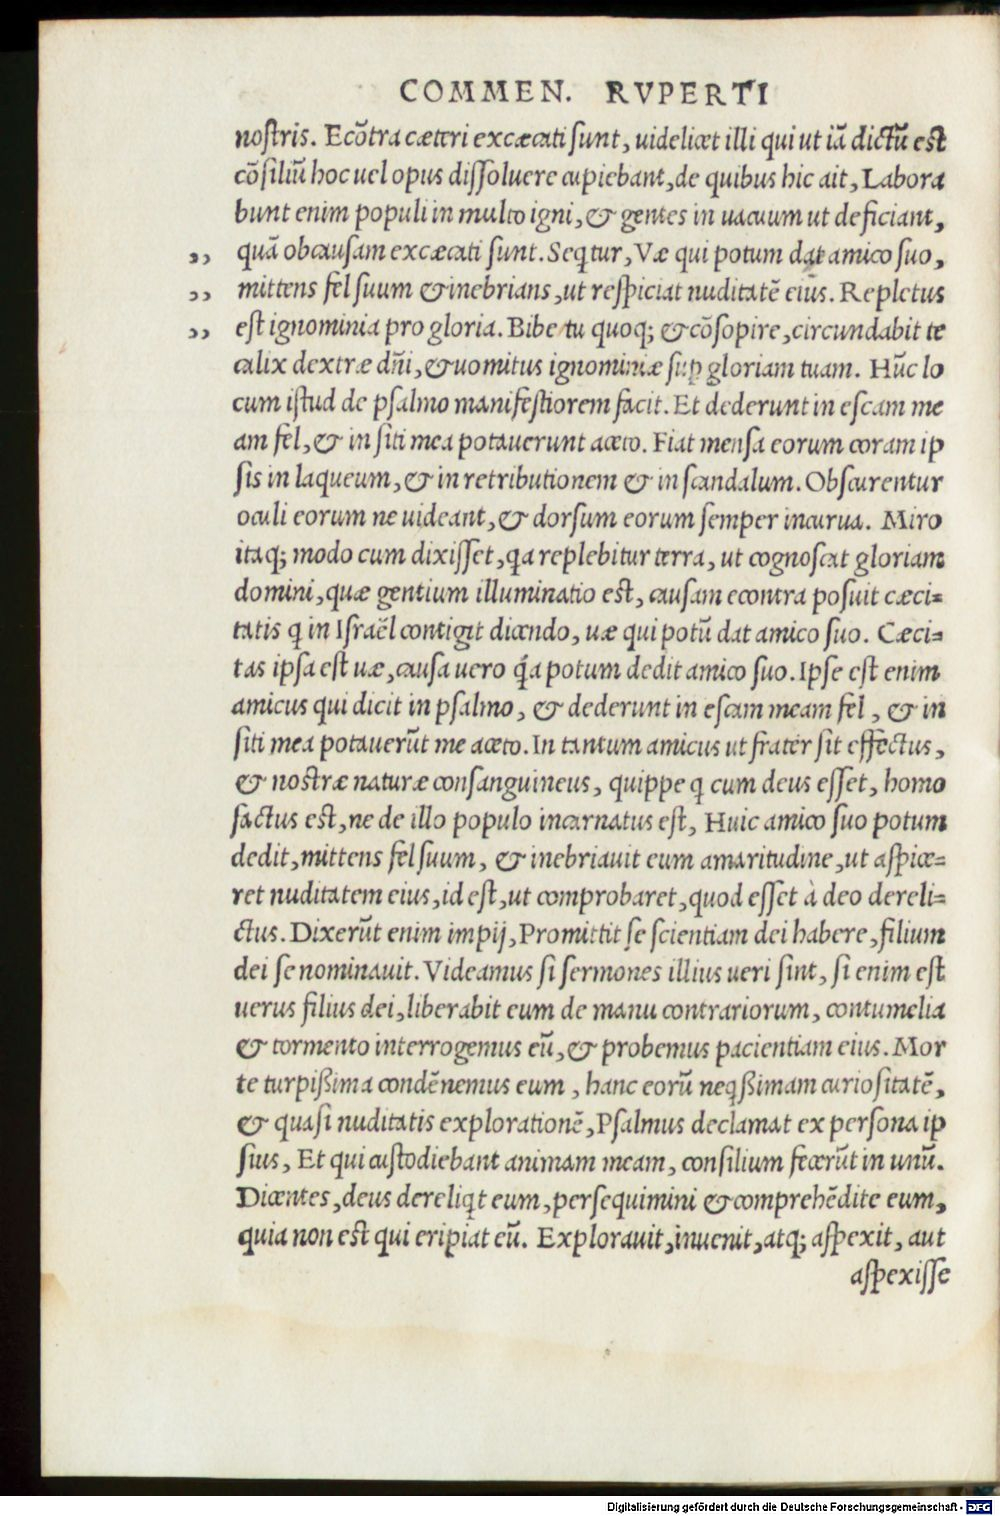 COMMEN. RVPERTI
nostris. Ecōtra cæteri excæcati sunt, uidelicet illi qui ut iā dictū est
cōsiliū hoc uel opus dissoluere cupiebant, de quibus hic ait, Labora
bunt enim populi in multo igni, & gentes in uacuum ut deficiant,
,, quā ob causam excæcati sunt. Seq̃tur, Væ qui potum dat amico suo,
,, mittens fel suum & inebrians, ut respiciat nuditatē eius. Repletus
,, est ignominia pro gloria. Bibe tu quoq; & cōsopire, circundabit te
calix dextræ dñi, & uomitus ignominiæ sup̱ gloriam tuam. Hūc lo
cum istud de psalmo manifestiorem facit. Et dederunt in escam me
am fel, & in siti mea potauerunt aceto. Fiat mensa eorum coram ip
sis in laqueum, & in retributionem & in scandalum. Obscurentur
oculi eorum ne uideant, & dorsum eorum semper incurua. Miro
itaq; modo cum dixisset, qa replebitur terra, ut cognoscat gloriam
domini, quæ gentium illuminatio est, causam econtra posuit cæci=
tatis q̃ in Israēl contigit dicendo, uæ qui potū dat amico suo. Cæci=
tas ipsa est uæ, causa uero q̃a potum dedit amico suo. Ipse est enim
amicus qui dicit in psalmo, & dederunt in escam meam fel, & in
siti mea potauerūt me aceto. In tantum amicus ut frater sit effectus,
& nostræ naturæ consanguineus, quippe q̃ cum deus esset, homo
factus est, ne de illo populo incarnatus est, Huic amico suo potum
dedit, mittens fel suum, & inebriauit eum amaritudine, ut aspice=
ret nuditatem eius, id est, ut comprobaret, quod esset à deo dereli=
ctus. Dixerūt enim impij, Promittit se scientiam dei habere, filium
dei se nominauit. Videamus si sermones illius ueri sint, si enim est
uerus filius dei, liberabit eum de manu contrariorum, contumelia
& tormento interrogemus eū, & probemus pacientiam eius. Mor
te turpißima condēnemus eum, hanc eorū neq̃ßimam curiositatē,
& quasi nuditatis explorationē, Psalmus declamat ex persona ip
sius, Et qui custodiebant animam meam, consilium fecerūt in unū.
Dicentes, deus dereliq̃t eum, persequimini & comprehēdite eum,
quia non est qui eripiat eū. Explorauit, inuenit, atq; aspexit, aut
aspexisse
Digitalisierung gefördert durch die Deutsche Forschungsgemeinschaft - DFG